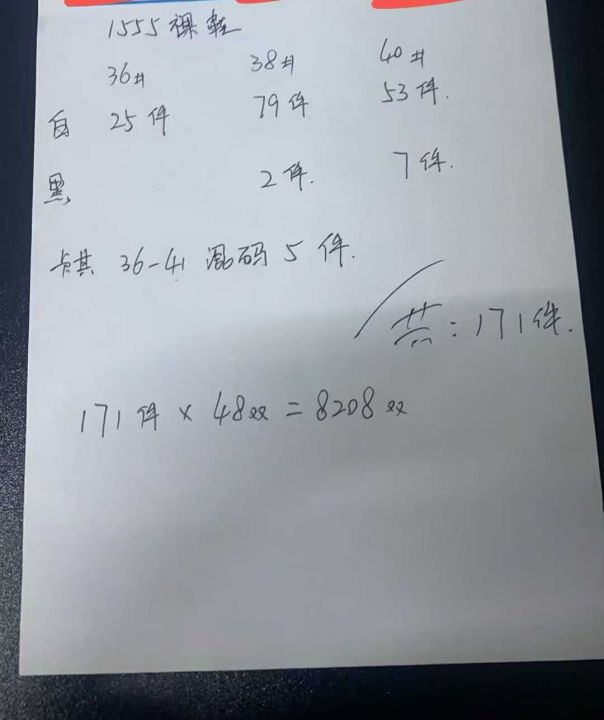 1555裸鞋
36# 38# 40#
白 25件 79件 53件.
黑 2件. 7件.
卡其 36-41 混码 5件.
共:171件.
171件×48双=8208双